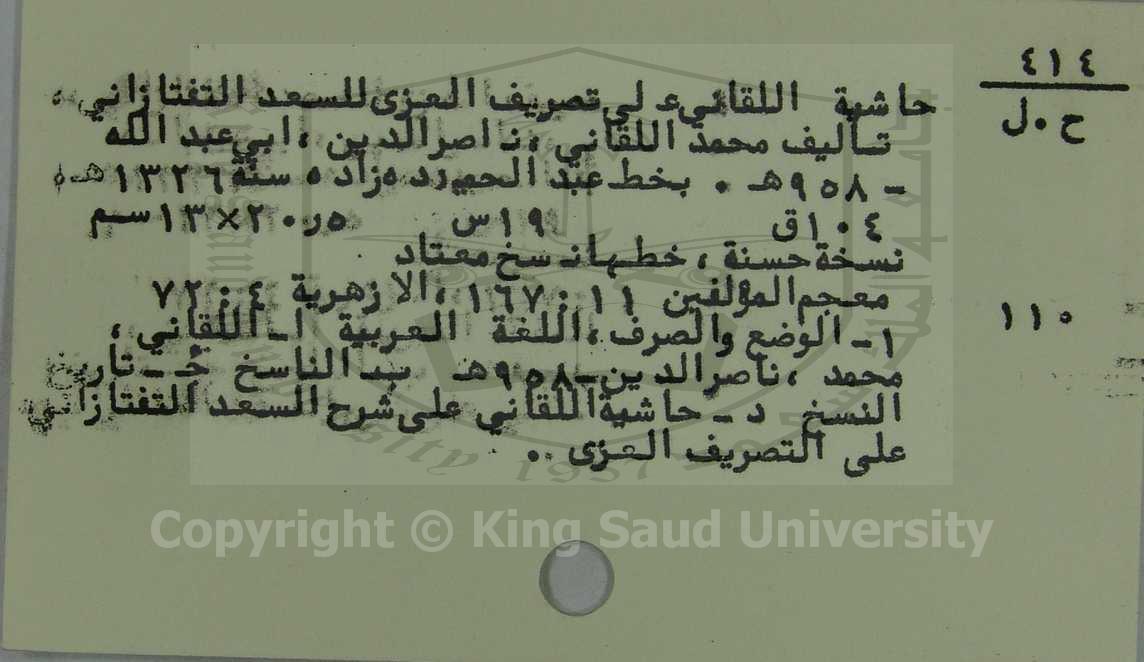 ٤١٤
ح٠ل
حاشية اللقاني على تصريف العزى للسعد التفتازاني ،
تأليف محمد اللقاني ، ناصرالدين ، ابي عبد الله
- ٩٥٨هـ . بخط عبد الحميد ده زاده سنة ١٣٢٦هـ .
١٠٤ق ١٩س ٢٠ر٥×١٣سم
نسخة حسنة ، خطها نسخ معتاد
معجم المؤلفين ١١ :١٦٧ ،الازهرية ٤ :٧٢
١١٥
١- الوضع والصرف ،اللغة العربية ا- اللقاني ،
محمد ،ناصرالدين-٩٥٨هـ ب- الناسخ ج-تاريخ
النسخ د- حاشية اللقاني على شرح السعد التفتازاني
على التصريف العزى ..
Copyright © King Saud University
1957